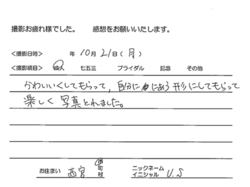 撮影お疲れ様でした。 感想をお願いいたします。
<撮影日時> 年 10月 21日 (月)
<撮影項目> 個人 七五三 ブライダル 記念 その他
かわいくしてもらって、自分にあう形にしてもらって
楽しく写真とれました。
お住まい 西宮 市 ニックネーム イニシャル U.S